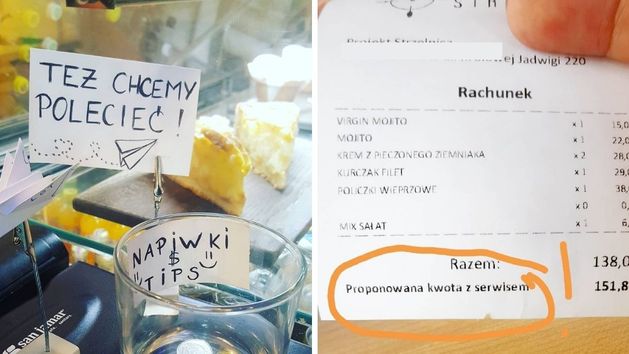 TEŻ CHCEMY
POLECIEĆ !
NAPIWKI
$
TIPS
san jamar
Projekt Strzelnica
Jadwigi 220
Rachunek
VIRGIN MOJITO x 1 15,0
MOJITO x 1 22,0
KREM Z PIECZONEGO ZIEMNIAKA x 2 28,0
KURCZAK FILET x 1 29,0
POLICZKI WIEPRZOWE x 1 38,
x 0 0,
MIX SAŁAT x 1 6,
Razem: 138,0
Proponowana kwota z serwisem 151,8